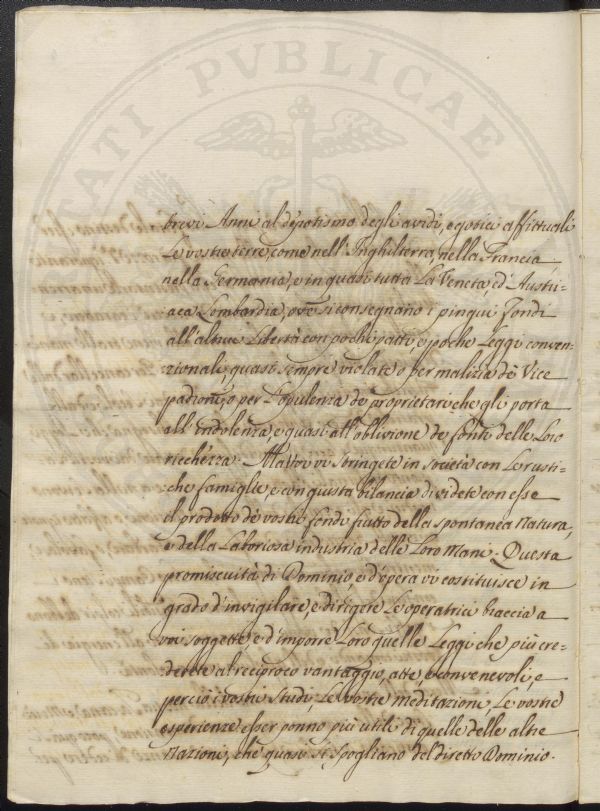 TATI PVBLICAE
brevi Anni al dèpotismo degli avidi, egotici affittuali
Le vostre terre, come nell'Inghilterra, nella Francia
nella Germania, e in quasi tutta La Veneta, ed' Austri=
aca Lombardia, ove si consegnano i pingui fondi
all'altrui Libertà con pochi patti, e poche Leggi conven=
zionali, quasi sempre violate o per malizia de' Vice
padroni, o per L'opulenza de' proprietari che gli porta
all'Indolenza, e quasi all'oblivione de' fonti delle Loro
ricchezza. Ma voi vi stringete in società con Le rusti=
che famiglie, e con giusta bilancia dividete con esse
il prodotto de' vostri fondi frutto della spontanea Natura,
e della Laboriosa industria delle Loro Mani. Questa
promiscuità di Dominio e d'opera vi costituisce in
grado d'invigilare, e dirigere Le operatrici braccia a
voi soggette, e d'imporre Loro quelle Leggi che più cre=
derete al reciproco vantaggio, atte, e convenevoli, e
perciò i vostri Studi Le vostre meditazioni, Le vostre
esperienze esser ponno più utili di quelle delle altre
Nazioni, che quasi si spogliano del diretto Dominio.